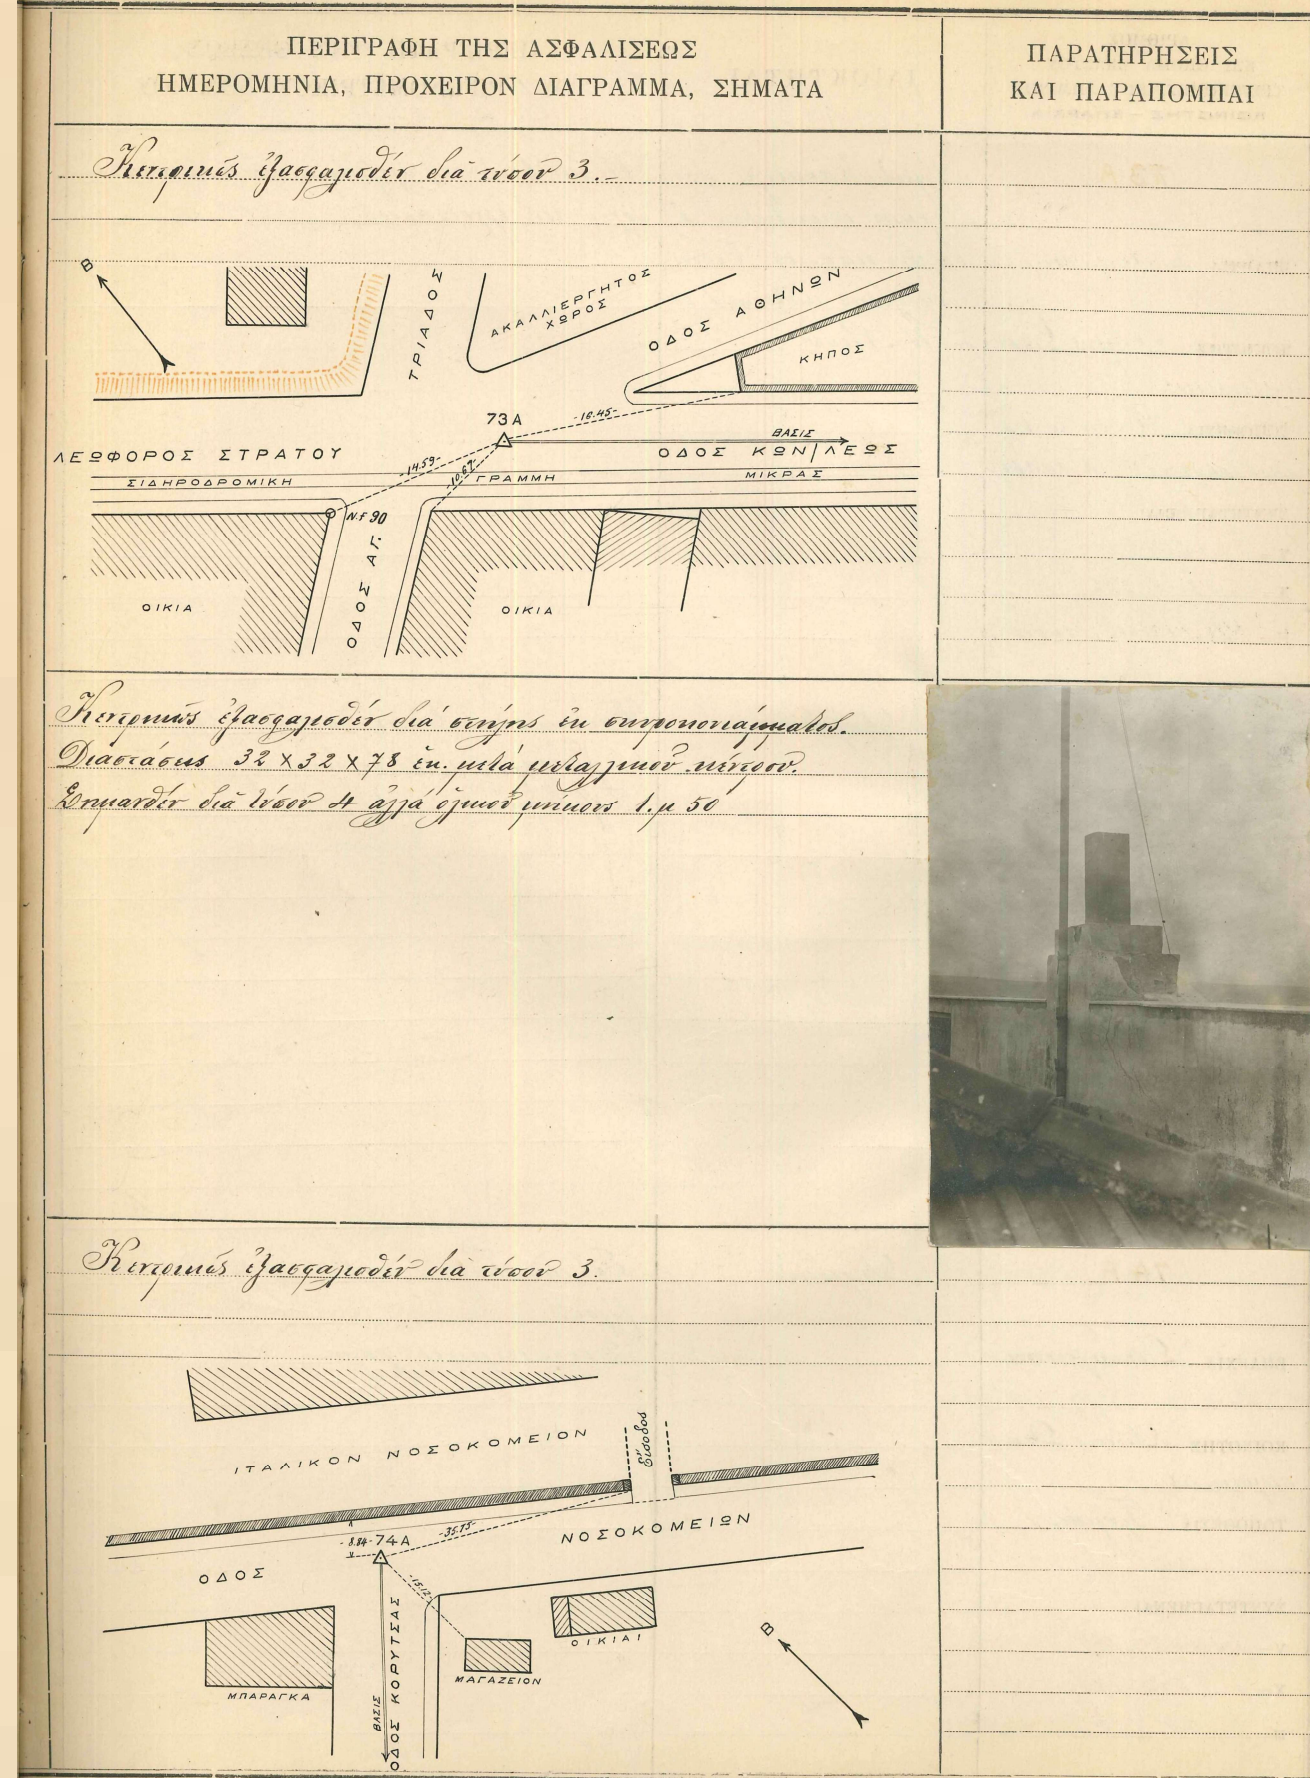 ΠΕΡΙΓΡΑΦΗ ΤΗΣ ΑΣΦΑΛΙΣΕΩΣ
ΗΜΕΡΟΜΗΝΙΑ, ΠΡΟΧΕΙΡΟΝ ΔΙΑΓΡΑΜΜΑ, ΣΗΜΑΤΑ
ΠΑΡΑΤΗΡΗΣΕΙΣ
ΚΑΙ ΠΑΡΑΠΟΜΠΑΙ
Κεντρικῶς ἐξασφαλισθέν διά τύπου 3.-
Β
ΤΡΙΑΔΟΣ
ΑΚΑΛΛΙΕΡΓΗΤΟΣ
ΧΩΡΟΣ
ΟΔΟΣ ΑΘΗΝΩΝ
ΚΗΠΟΣ
73Α
-16.45-
ΒΑΣΙΣ
ΛΕΩΦΟΡΟΣ ΣΤΡΑΤΟΥ
ΟΔΟΣ ΚΩΝ/ΛΕΩΣ
-14.59-
-10.67-
ΣΙΔΗΡΟΔΡΟΜΙΚΗ ΓΡΑΜΜΗ ΜΙΚΡΑΣ
N.f 90
ΟΔΟΣ ΑΓ.
ΟΙΚΙΑ
ΟΙΚΙΑ
Κεντρικῶς ἐξασφαλισθέν διά στήλης ἐκ σκιροκονιάματος.
Διαστάσεις 32 X 32 X 78 ἐκ. μετά μεταλλικοῦ κέντρου.
Σημανθέν διά τύπου 4 ἀλλά ὁλικοῦ μήκους 1.μ 50
Κεντρικῶς ἐξασφαλισθέν διά τύπου 3.
ΙΤΑΛΙΚΟΝ ΝΟΣΟΚΟΜΕΙΟΝ
Εἴσοδος
-8.84-
74Α
-35.75-
ΟΔΟΣ
ΝΟΣΟΚΟΜΕΙΩΝ
-15.12-
ΜΠΑΡΑΓΚΑ
ΒΑΣΙΣ
ΟΔΟΣ ΚΟΡΥΤΣΑΣ
ΜΑΓΑΖΕΙΟΝ
ΟΙΚΙΑΙ
Β